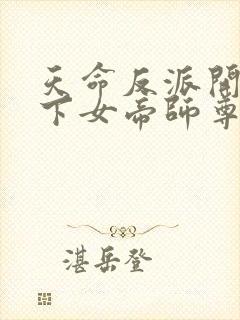 天命反派開
下女帝師尊
湛岳登